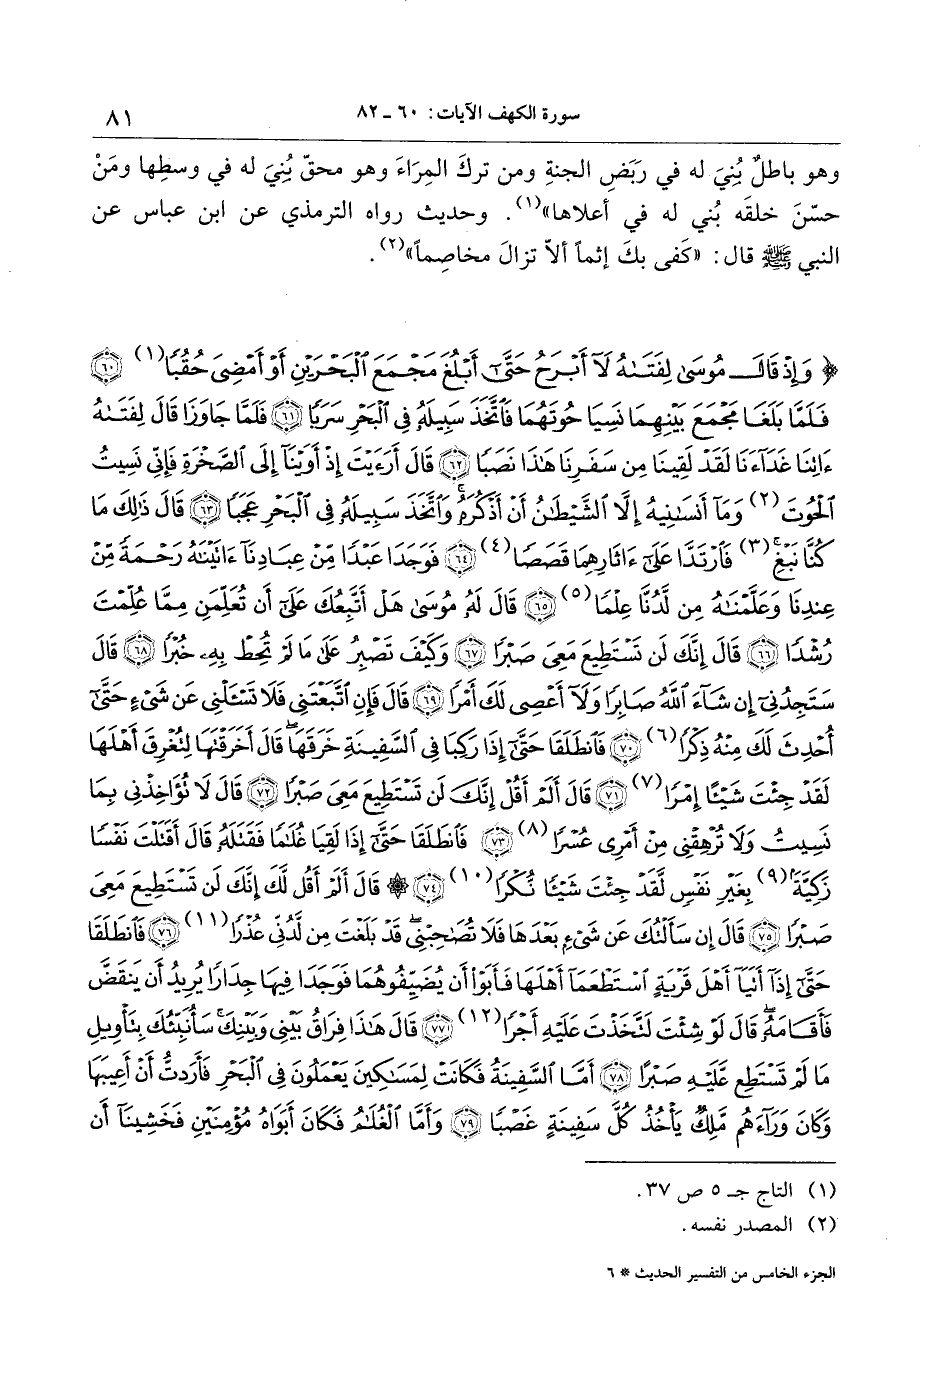 سورة الكهف الآيات: ٦٠ - ٨٢
٨١
وهو باطلٌ بُنِيَ له في رَبَضِ الجنةِ ومن تركَ المِرَاءَ وهو محقّ بُنِيَ له في وسطِها ومَنْ
حسّنَ خلقَه بُني له في أعلاها»(١). وحديث رواه الترمذي عن ابن عباس عن
النبي ﷺ قال: «كَفى بكَ إثماً ألاّ تزالَ مخاصِماً»(٢).
﴿ وَإِذْ قَالَ مُوسَىٰ لِفَتَىٰهُ لَآ أَبْرَحُ حَتَّىٰٓ أَبْلُغَ مَجْمَعَ ٱلْبَحْرَيْنِ أَوْ أَمْضِيَ حُقُبًا (١) ٦٠
فَلَمَّا بَلَغَا مَجْمَعَ بَيْنِهِمَا نَسِيَا حُوتَهُمَا فَٱتَّخَذَ سَبِيلَهُۥ فِي ٱلْبَحْرِ سَرَبًا ٦١ فَلَمَّا جَاوَزَا قَالَ لِفَتَىٰهُ
ءَاتِنَا غَدَآءَنَا لَقَدْ لَقِينَا مِن سَفَرِنَا هَٰذَا نَصَبًا ٦٢ قَالَ أَرَءَيْتَ إِذْ أَوَيْنَآ إِلَى ٱلصَّخْرَةِ فَإِنِّي نَسِيتُ
ٱلْحُوتَ (٢) وَمَآ أَنسَىٰنِيهُ إِلَّا ٱلشَّيْطَٰنُ أَنْ أَذْكُرَهُۥ وَٱتَّخَذَ سَبِيلَهُۥ فِي ٱلْبَحْرِ عَجَبًا ٦٣ قَالَ ذَٰلِكَ مَا
كُنَّا نَبْغِ (٣) فَٱرْتَدَّا عَلَىٰٓ ءَاثَارِهِمَا قَصَصًا (٤) ٦٤ فَوَجَدَا عَبْدًا مِّنْ عِبَادِنَآ ءَاتَيْنَٰهُ رَحْمَةً مِّنْ
عِندِنَا وَعَلَّمْنَٰهُ مِن لَّدُنَّا عِلْمًا (٥) ٦٥ قَالَ لَهُۥ مُوسَىٰ هَلْ أَتَّبِعُكَ عَلَىٰٓ أَن تُعَلِّمَنِ مِمَّا عُلِّمْتَ
رُشْدًا ٦٦ قَالَ إِنَّكَ لَن تَسْتَطِيعَ مَعِيَ صَبْرًا ٦٧ وَكَيْفَ تَصْبِرُ عَلَىٰ مَا لَمْ تُحِطْ بِهِۦ خُبْرًا ٦٨ قَالَ
سَتَجِدُنِيٓ إِن شَآءَ ٱللَّهُ صَابِرًا وَلَآ أَعْصِي لَكَ أَمْرًا ٦٩ قَالَ فَإِنِ ٱتَّبَعْتَنِي فَلَا تَسْـَٔلْنِي عَن شَيْءٍ حَتَّىٰٓ
أُحْدِثَ لَكَ مِنْهُ ذِكْرًا (٦) ٧٠ فَٱنطَلَقَا حَتَّىٰٓ إِذَا رَكِبَا فِي ٱلسَّفِينَةِ خَرَقَهَا ۖ قَالَ أَخَرَقْتَهَا لِتُغْرِقَ أَهْلَهَا
لَقَدْ جِئْتَ شَيْـًٔا إِمْرًا (٧) ٧١ قَالَ أَلَمْ أَقُلْ إِنَّكَ لَن تَسْتَطِيعَ مَعِيَ صَبْرًا ٧٢ قَالَ لَا تُؤَاخِذْنِي بِمَا
نَسِيتُ وَلَا تُرْهِقْنِي مِنْ أَمْرِي عُسْرًا (٨) ٧٣ فَٱنطَلَقَا حَتَّىٰٓ إِذَا لَقِيَا غُلَٰمًا فَقَتَلَهُۥ قَالَ أَقَتَلْتَ نَفْسًا
زَكِيَّةً (٩) بِغَيْرِ نَفْسٍ لَّقَدْ جِئْتَ شَيْـًٔا نُّكْرًا (١٠) ٧٤ ۞ قَالَ أَلَمْ أَقُل لَّكَ إِنَّكَ لَن تَسْتَطِيعَ مَعِيَ
صَبْرًا ٧٥ قَالَ إِن سَأَلْتُكَ عَن شَيْءٍ بَعْدَهَا فَلَا تُصَٰحِبْنِي ۖ قَدْ بَلَغْتَ مِن لَّدُنِّي عُذْرًا (١١) ٧٦ فَٱنطَلَقَا
حَتَّىٰٓ إِذَآ أَتَيَآ أَهْلَ قَرْيَةٍ ٱسْتَطْعَمَآ أَهْلَهَا فَأَبَوْا۟ أَن يُضَيِّفُوهُمَا فَوَجَدَا فِيهَا جِدَارًا يُرِيدُ أَن يَنقَضَّ
فَأَقَامَهُۥ ۖ قَالَ لَوْ شِئْتَ لَتَّخَذْتَ عَلَيْهِ أَجْرًا (١٢) ٧٧ قَالَ هَٰذَا فِرَاقُ بَيْنِي وَبَيْنِكَ ۚ سَأُنَبِّئُكَ بِتَأْوِيلِ
مَا لَمْ تَسْتَطِع عَّلَيْهِ صَبْرًا ٧٨ أَمَّا ٱلسَّفِينَةُ فَكَانَتْ لِمَسَٰكِينَ يَعْمَلُونَ فِي ٱلْبَحْرِ فَأَرَدتُّ أَنْ أَعِيبَهَا
وَكَانَ وَرَآءَهُم مَّلِكٌ يَأْخُذُ كُلَّ سَفِينَةٍ غَصْبًا ٧٩ وَأَمَّا ٱلْغُلَٰمُ فَكَانَ أَبَوَاهُ مُؤْمِنَيْنِ فَخَشِينَآ أَن
(١) التاج جـ ٥ ص ٣٧.
(٢) المصدر نفسه.
الجزء الخامس من التفسير الحديث * ٦